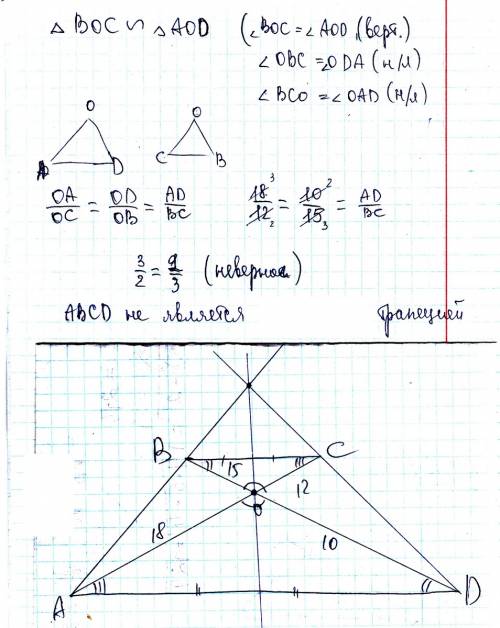 △ BOC ∽ △ AOD (∠BOC = ∠AOD (верт.)
∠OBC = ∠ODA (н/л)
∠BCO = ∠OAD (н/л)
O O
A D C B
OA/OC = OD/OB = AD/BC 18³/12₂ = 10²/15₃ = AD/BC
3/2 = 2/3 (неверно)
ABCD не является трапецией
B C
15
12
O
18
10
A D